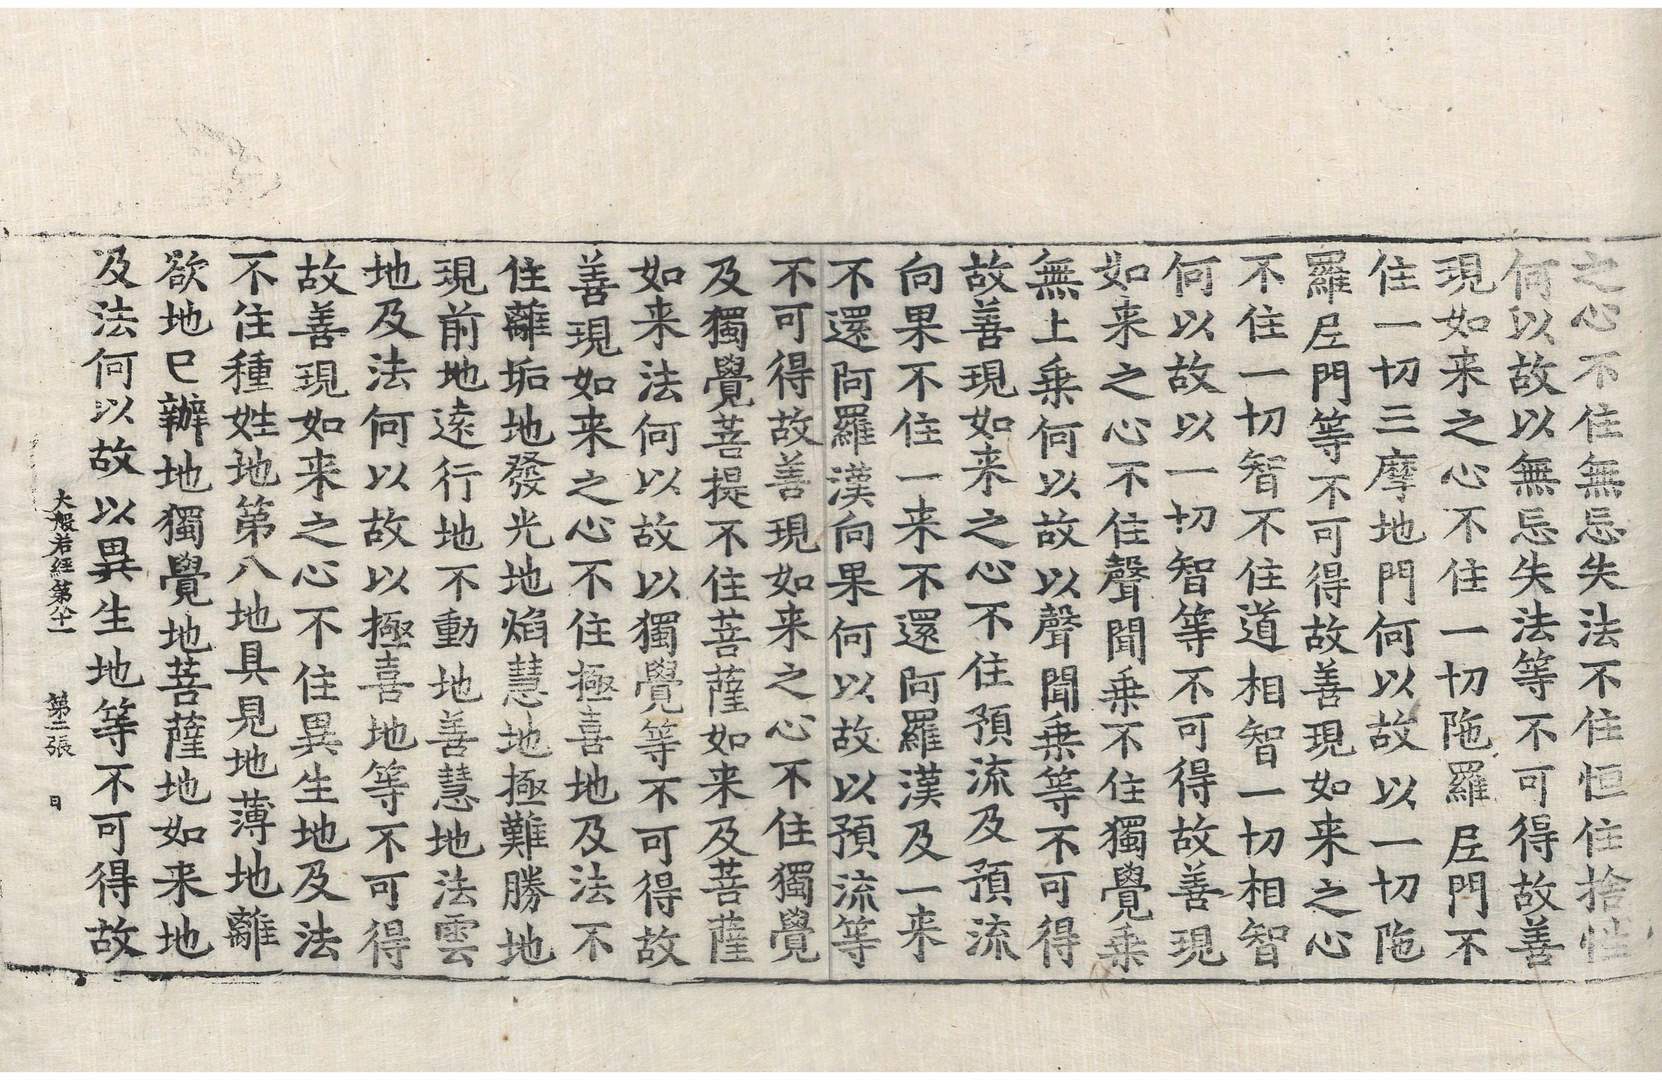 之心不住無忘失法不住恒住捨性
何以故以無忘失法等不可得故善
現如来之心不住一切陁羅𡰱門不
住一切三摩地門何以故以一切陁
羅𡰱門等不可得故善現如来之心
不住一切智不住道相智一切相智
何以故以一切智等不可得故善現
如来之心不住聲聞乗不住獨覺乗
無上乗何以故以聲聞乗等不可得
故善現如来之心不住預流及預流
向果不住一来不還阿羅漢及一来
不還阿羅漢向果何以故以預流等
不可得故善現如来之心不住獨覺
及獨覺菩提不住菩薩如来及菩薩
如来法何以故以獨覺等不可得故
善現如来之心不住極喜地及法不
住離垢地發光地焰慧地極難勝地
現前地遠行地不動地善慧地法雲
地及法何以故以極喜地等不可得
故善現如来之心不住異生地及法
不住種姓地第八地具見地薄地離
欲地已辦地獨覺地菩薩地如来地
及法何以故以異生地等不可得故
大般若經第八十一　第二張　日